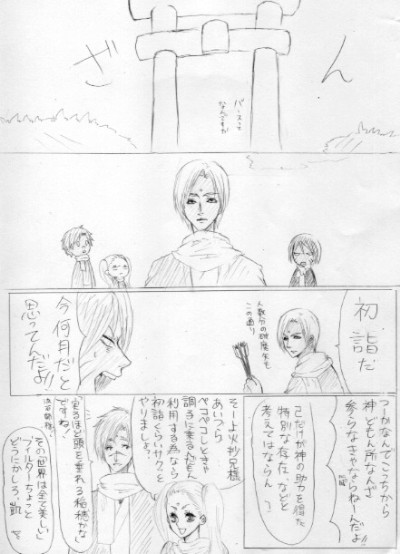 ざん
パースって
なんですか
初
詣だ
人数分の破魔矢も
この通り
今何月だと
思ってんだよ!!
つーかなんでこっちから
神ども所なんざ
参らなきゃならねーんだよ!!
凱
己だけが神の助力を得た
特別な存在などと
考えてはならん
そーよ火村兄様
あいつら
ペコペコしときゃ
調子に乗るんだもん
利用する為なら
初詣くらいサクッと
やりましょ。
実るほど頭を垂れる稲穂かな
ですね!
その世界は全て美しい
フィルターちょっと
どうにかしろ。凱